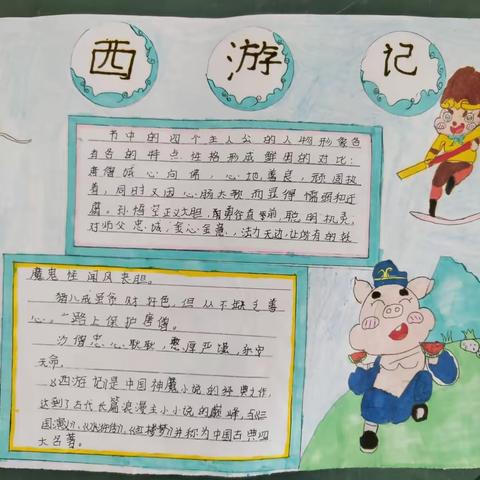 西游记
书中的四个主人公的人物形象各
自各的特点性格形成鲜明的对比:
唐僧诚心向佛,心地善良,顽固执
着,同时又因心肠太软而显得懦弱和迂
腐。孙悟空正义大胆,勇直聪的机灵,
对师父忠诚,金心金意,法力无边,让所有的妖
魔鬼怪闻风丧胆。
猪八戒贪财好色,但从不缺乏善
心。一路上保护唐僧。
沙僧忠心耿耿,憨厚严谨,听守
天命。
《西游记》是中国神魔小说的经典之作,
达到了古代长篇浪漫主小小说的巅峰,与《三
国演义》、《水浒传》、《红楼梦》并称为中国古典四
大名著。